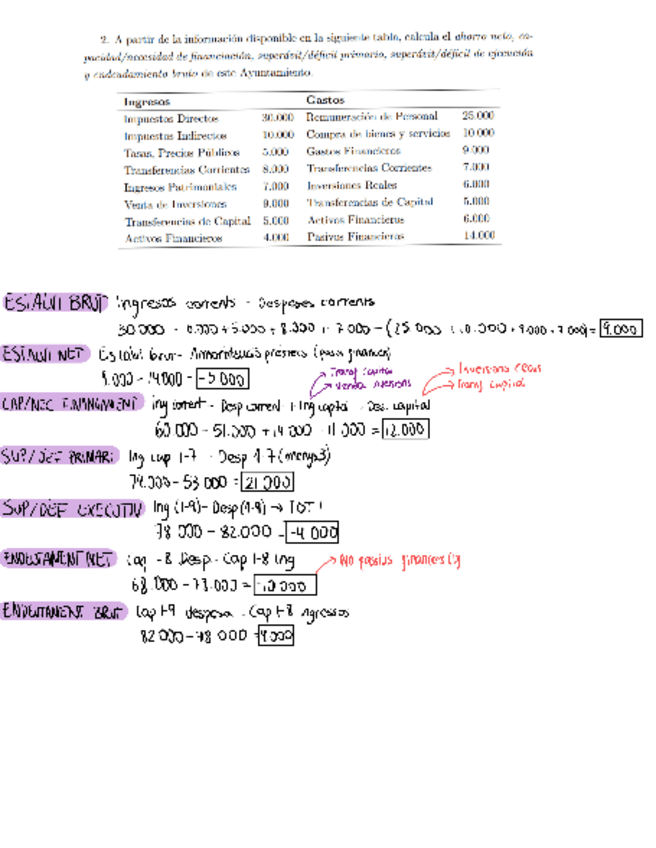 2. A partir de la información disponible en la siguiente tabla, calcula el ahorro neto, ca-
pacidad/necesidad de financiación, superávit/déficit primario, superávit/déficit de ejecución
y endeudamiento bruto de este Ayuntamiento.
Ingresos Gastos
Impuestos Directos 30.000 Remuneración de Personal 25.000
Impuestos Indirectos 10.000 Compra de bienes y servicios 10.000
Tasas, Precios Públicos 5.000 Gastos Financieros 9.000
Transferencias Corrientes 8.000 Transferencias Corrientes 7.000
Ingresos Patrimoniales 7.000 Inversiones Reales 6.000
Venta de Inversiones 9.000 Transferencias de Capital 5.000
Transferencias de Capital 5.000 Activos Financieros 6.000
Activos Financieros 4.000 Pasivos Financieros 14.000
ESTALVI BRUT Ingressos corrents - Despeses corrents
30.000 + 10.000 + 5.000 + 8.000 + 7.000 - (25.000 + 10.000 + 9.000 + 7.000) = 9.000
ESTALVI NET Estalvi brut - Amortització préstecs (passius financers)
9.000 - 14.000 = -5.000
Transf capital
Venda inversions
Inversions reals
Transf capital
CAP/NEC FINANÇAMENT ing corrent - Desp corrent + Ing capital - Des. capital
60.000 - 51.000 + 14.000 - 11.000 = 12.000
SUP/DEF PRIMARI Ing cap 1-7 - Desp 1-7 (menys 3)
74.000 - 53.000 = 21.000
SUP/DÈF EXECUTIU Ing (1-9) - Desp (1-9) → TOT!
78.000 - 82.000 = -4.000
ENDEUTAMENT NET Cap -8 Desp - Cap 1-8 Ing → NO passius financers (9)
68.000 - 78.000 = -10.000
ENDEUTAMENT BRUT Cap 1-9 despesa - Cap 1-8 ingressos
82.000 - 78.000 = 4.000